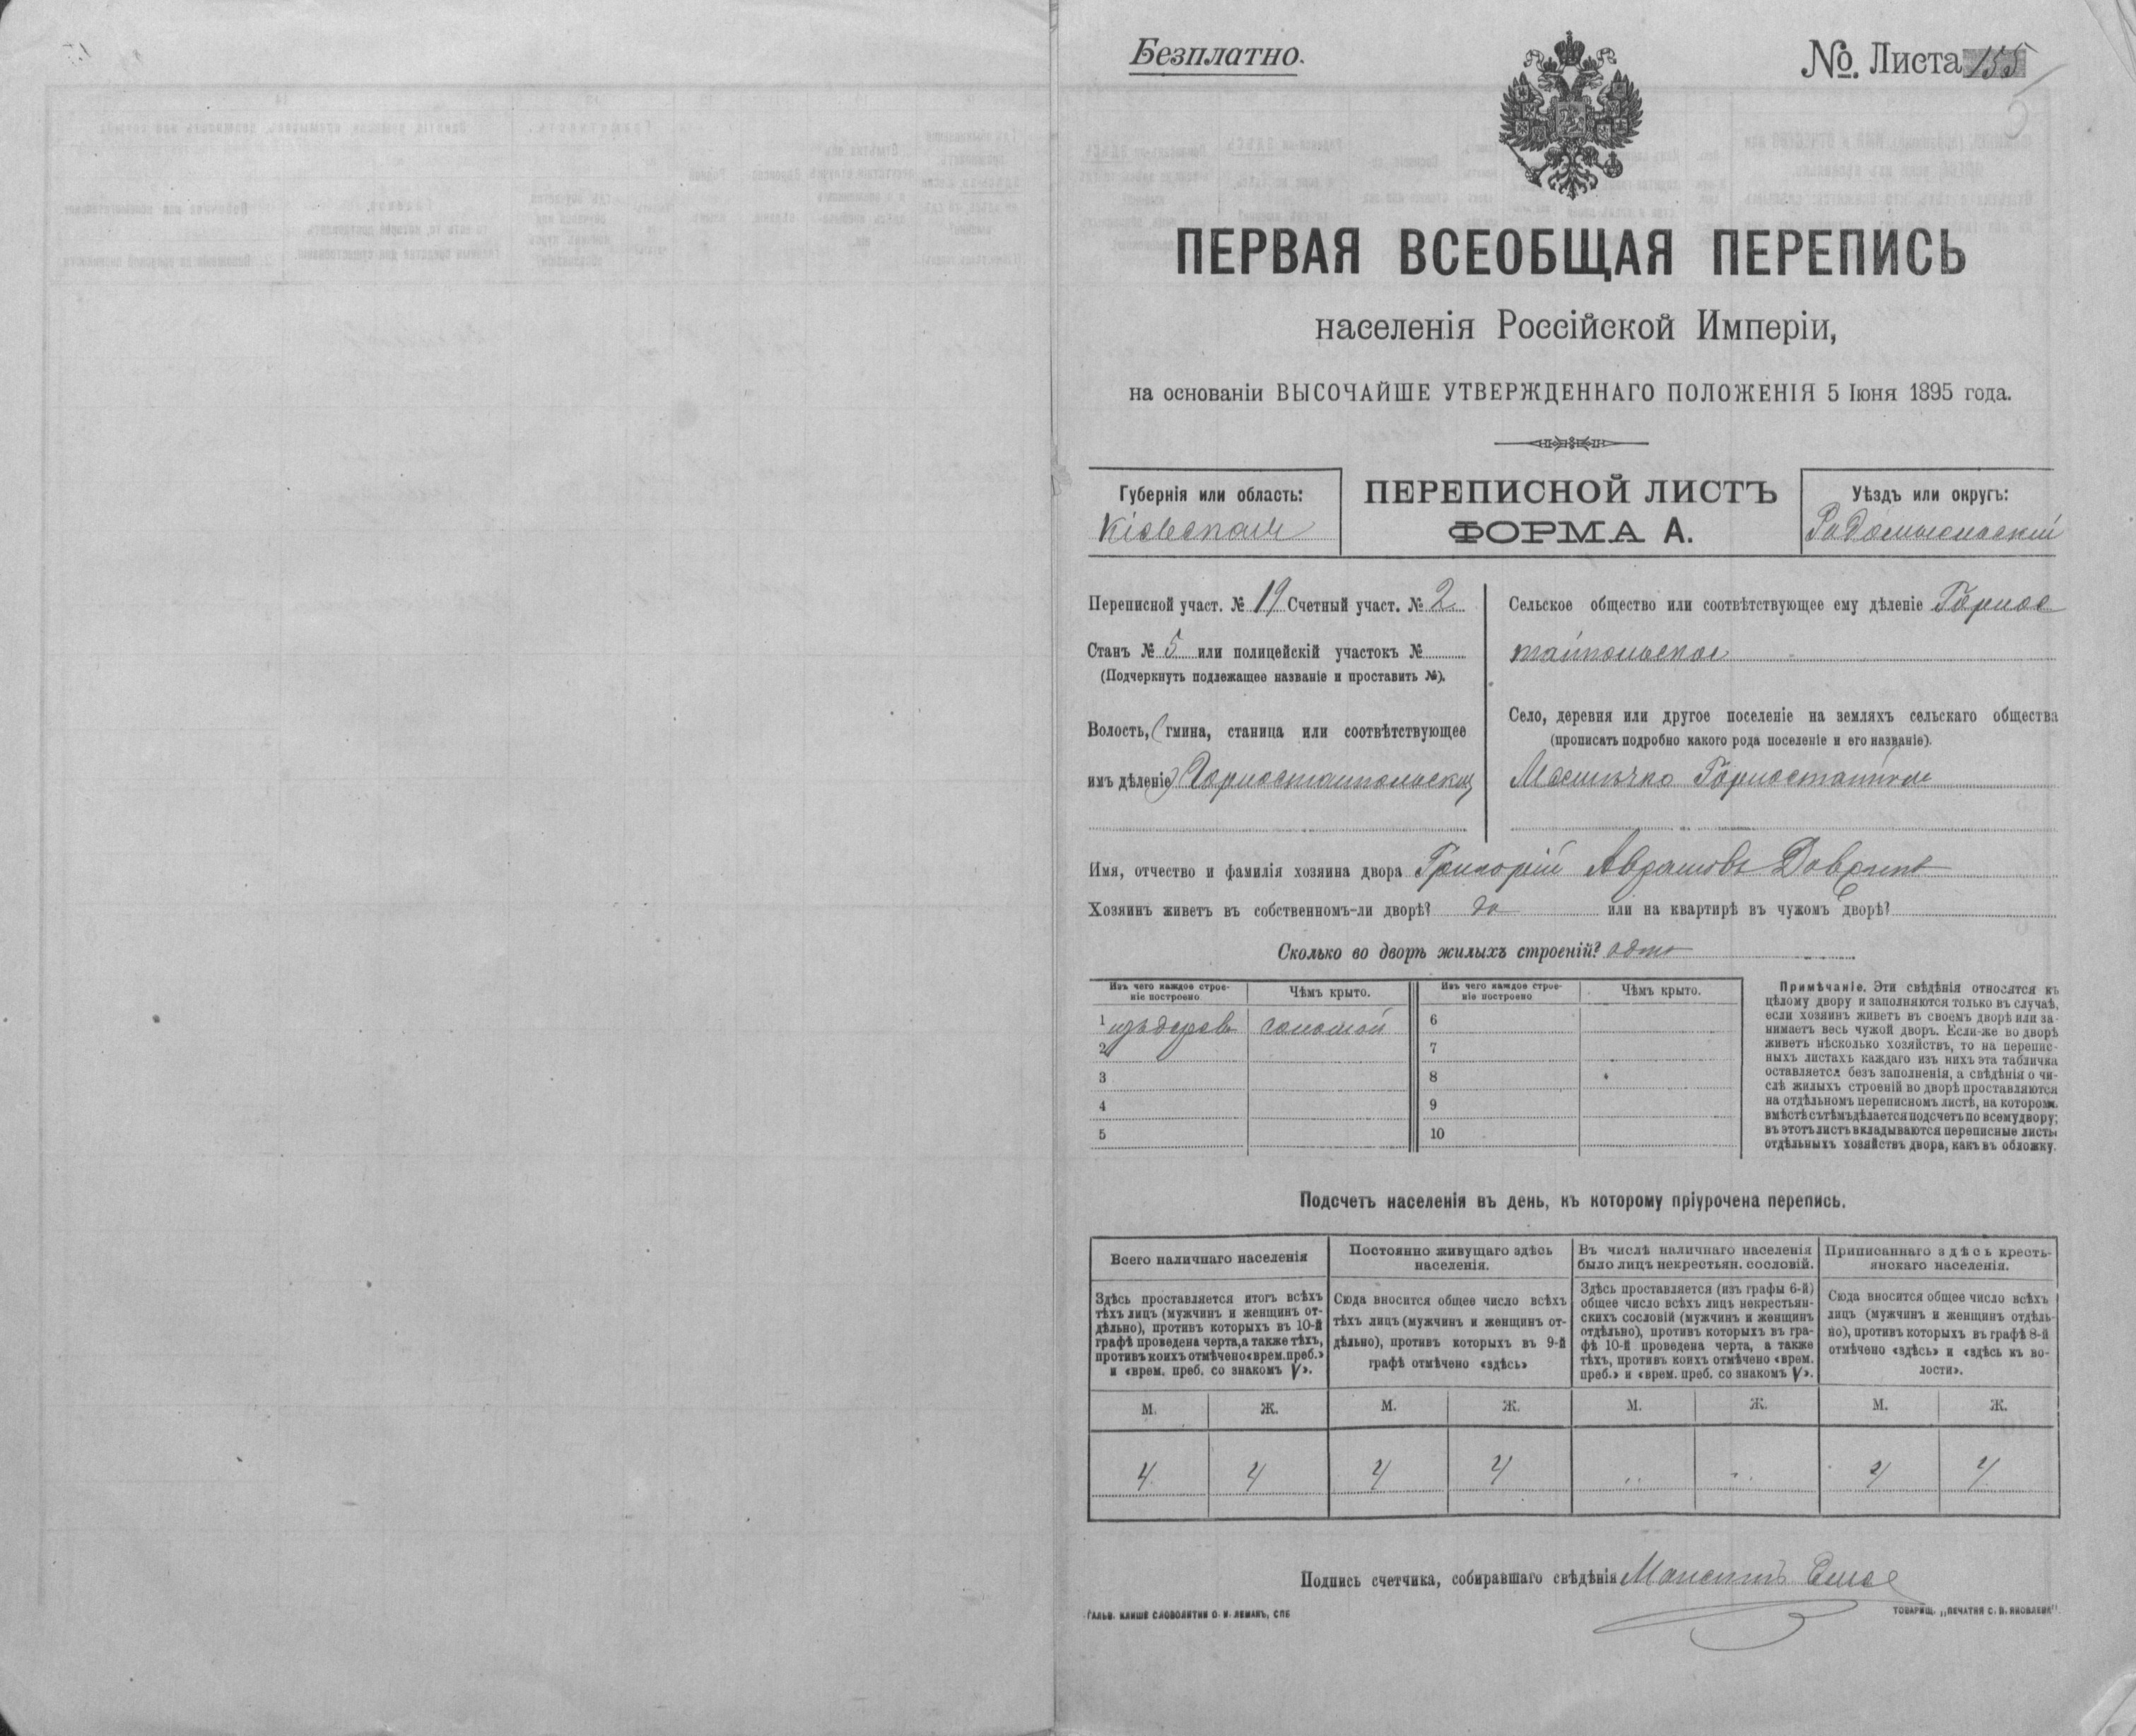 Безплатно.
№. Листа 155
ПЕРВАЯ ВСЕОБЩАЯ ПЕРЕПИСЬ
населенія Россійской Имперіи,
на основаніи ВЫСОЧАЙШЕ УТВЕРЖДЕННАГО ПОЛОЖЕНІЯ 5 Іюня 1895 года.
Губернія или область:
Кіевская
ПЕРЕПИСНОЙ ЛИСТЪ
ФОРМА А.
Уѣздъ или округъ:
Радомысльскій
Переписной участ. № 19 Счетный участ. № 2
Станъ № 5 или полицейскій участокъ №
(Подчеркнуть подлежащее названіе и проставить №).
Волость, (гмина, станица или соотвѣтствующее
имъ дѣленіе) Горностайпольская
Сельское общество или соотвѣтствующее ему дѣленіе Горнос
тайпольское
Село, деревня или другое поселеніе на земляхъ сельскаго общества
(прописать подробно какого рода поселеніе и его названіе).
Мѣстечко Горностайполь
Имя, отчество и фамилія хозяина двора Григорій Аврамовъ
Хозяинъ живетъ въ собственномъ-ли дворѣ? да или на квартирѣ въ чужомъ дворѣ?
Сколько во дворѣ жилыхъ строеній? одно
Изъ чего каждое строе-
ніе построено
Чѣмъ крыто.
Изъ чего каждое строе-
ніе построено
Чѣмъ крыто.
1 изъ дерев соломой
2
3
4
5
6
7
8
9
10
Примѣчаніе. Эти свѣдѣнія относятся къ
цѣлому двору и заполняются только въ случаѣ,
если хозяинъ живетъ въ своемъ дворѣ или за-
нимаетъ весь чужой дворъ. Если-же во дворѣ
живетъ нѣсколько хозяйствъ, то на перепис-
ныхъ листахъ каждаго изъ нихъ эта табличка
оставляется безъ заполненія, а свѣдѣнія о чи-
слѣ жилыхъ строеній во дворѣ проставляются
на отдѣльномъ переписномъ листѣ, на которомъ
вмѣстѣ съ тѣмъ дѣлается подсчетъ по всему двору;
въ этотъ листъ вкладываются переписные листы
отдѣльныхъ хозяйствъ двора, какъ въ обложку.
Подсчетъ населенія въ день, къ которому пріурочена перепись.
Всего наличнаго населенія
Здѣсь проставляется итогъ всѣхъ
тѣхъ лицъ (мужчинъ и женщинъ от-
дѣльно), противъ которыхъ въ 10-й
графѣ проведена черта, а также тѣхъ,
противъ коихъ отмѣчено «врем. преб.»
и «врем. преб. со знакомъ V».
Постоянно живущаго здѣсь
населенія.
Сюда вносится общее число всѣхъ
тѣхъ лицъ (мужчинъ и женщинъ от-
дѣльно), противъ которыхъ въ 9-й
графѣ отмѣчено «здѣсь»
Въ числѣ наличнаго населенія
было лицъ некрестьян. сословій.
Здѣсь проставляется (изъ графы 6-й)
общее число всѣхъ лицъ некрестьян-
скихъ сословій (мужчинъ и женщинъ
отдѣльно), противъ которыхъ въ гра-
фѣ 10-й проведена черта, а также
тѣхъ, противъ коихъ отмѣчено «врем.
преб.» и «врем. преб. со знакомъ V».
Приписаннаго здѣсь кресть-
янскаго населенія.
Сюда вносится общее число всѣхъ
лицъ (мужчинъ и женщинъ отдѣль-
но), противъ которыхъ въ графѣ 8-й
отмѣчено «здѣсь» и «здѣсь къ во-
лости».
М. Ж. М. Ж. М. Ж. М. Ж.
4 4 4 4 " " 4 4
Подпись счетчика, собиравшаго свѣдѣнія
ГАЛЬВ. КЛИШЕ СЛОВОЛИТНИ О. И. ЛЕМАНЪ, СПБ
ТОВАРИЩ. „ПЕЧАТНЯ С. П. ЯКОВЛЕВА"